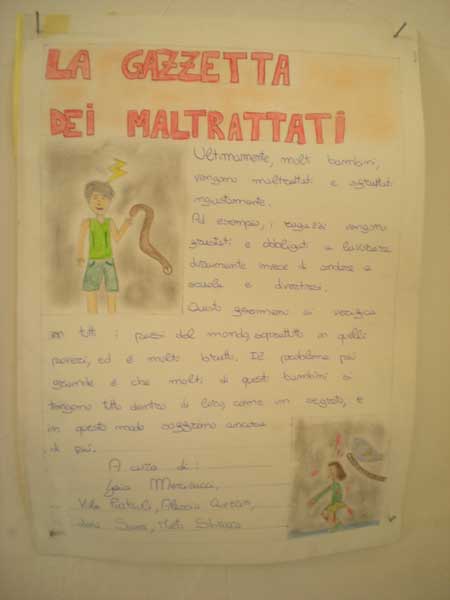 LA GAZZETTA
DEI MALTRATTATI
Ultimamente, molti bambini,
vengono maltrattati e sfruttati
ingiustamente.
Ad esempio, i ragazzi vengono
frustati e obbligati a lavorare
duramente invece di andare a
scuola e divertirsi.
Questi fenomeni si verifica
in tutti i paesi del mondo, soprattutto in quelli
poveri, ed è molto brutto. Il problema più
grande è che molti di questi bambini si
tengono tutto dentro di loro, come un segreto, e
in questo modo soffrono ancora
di più.
A cura di:
Gaia